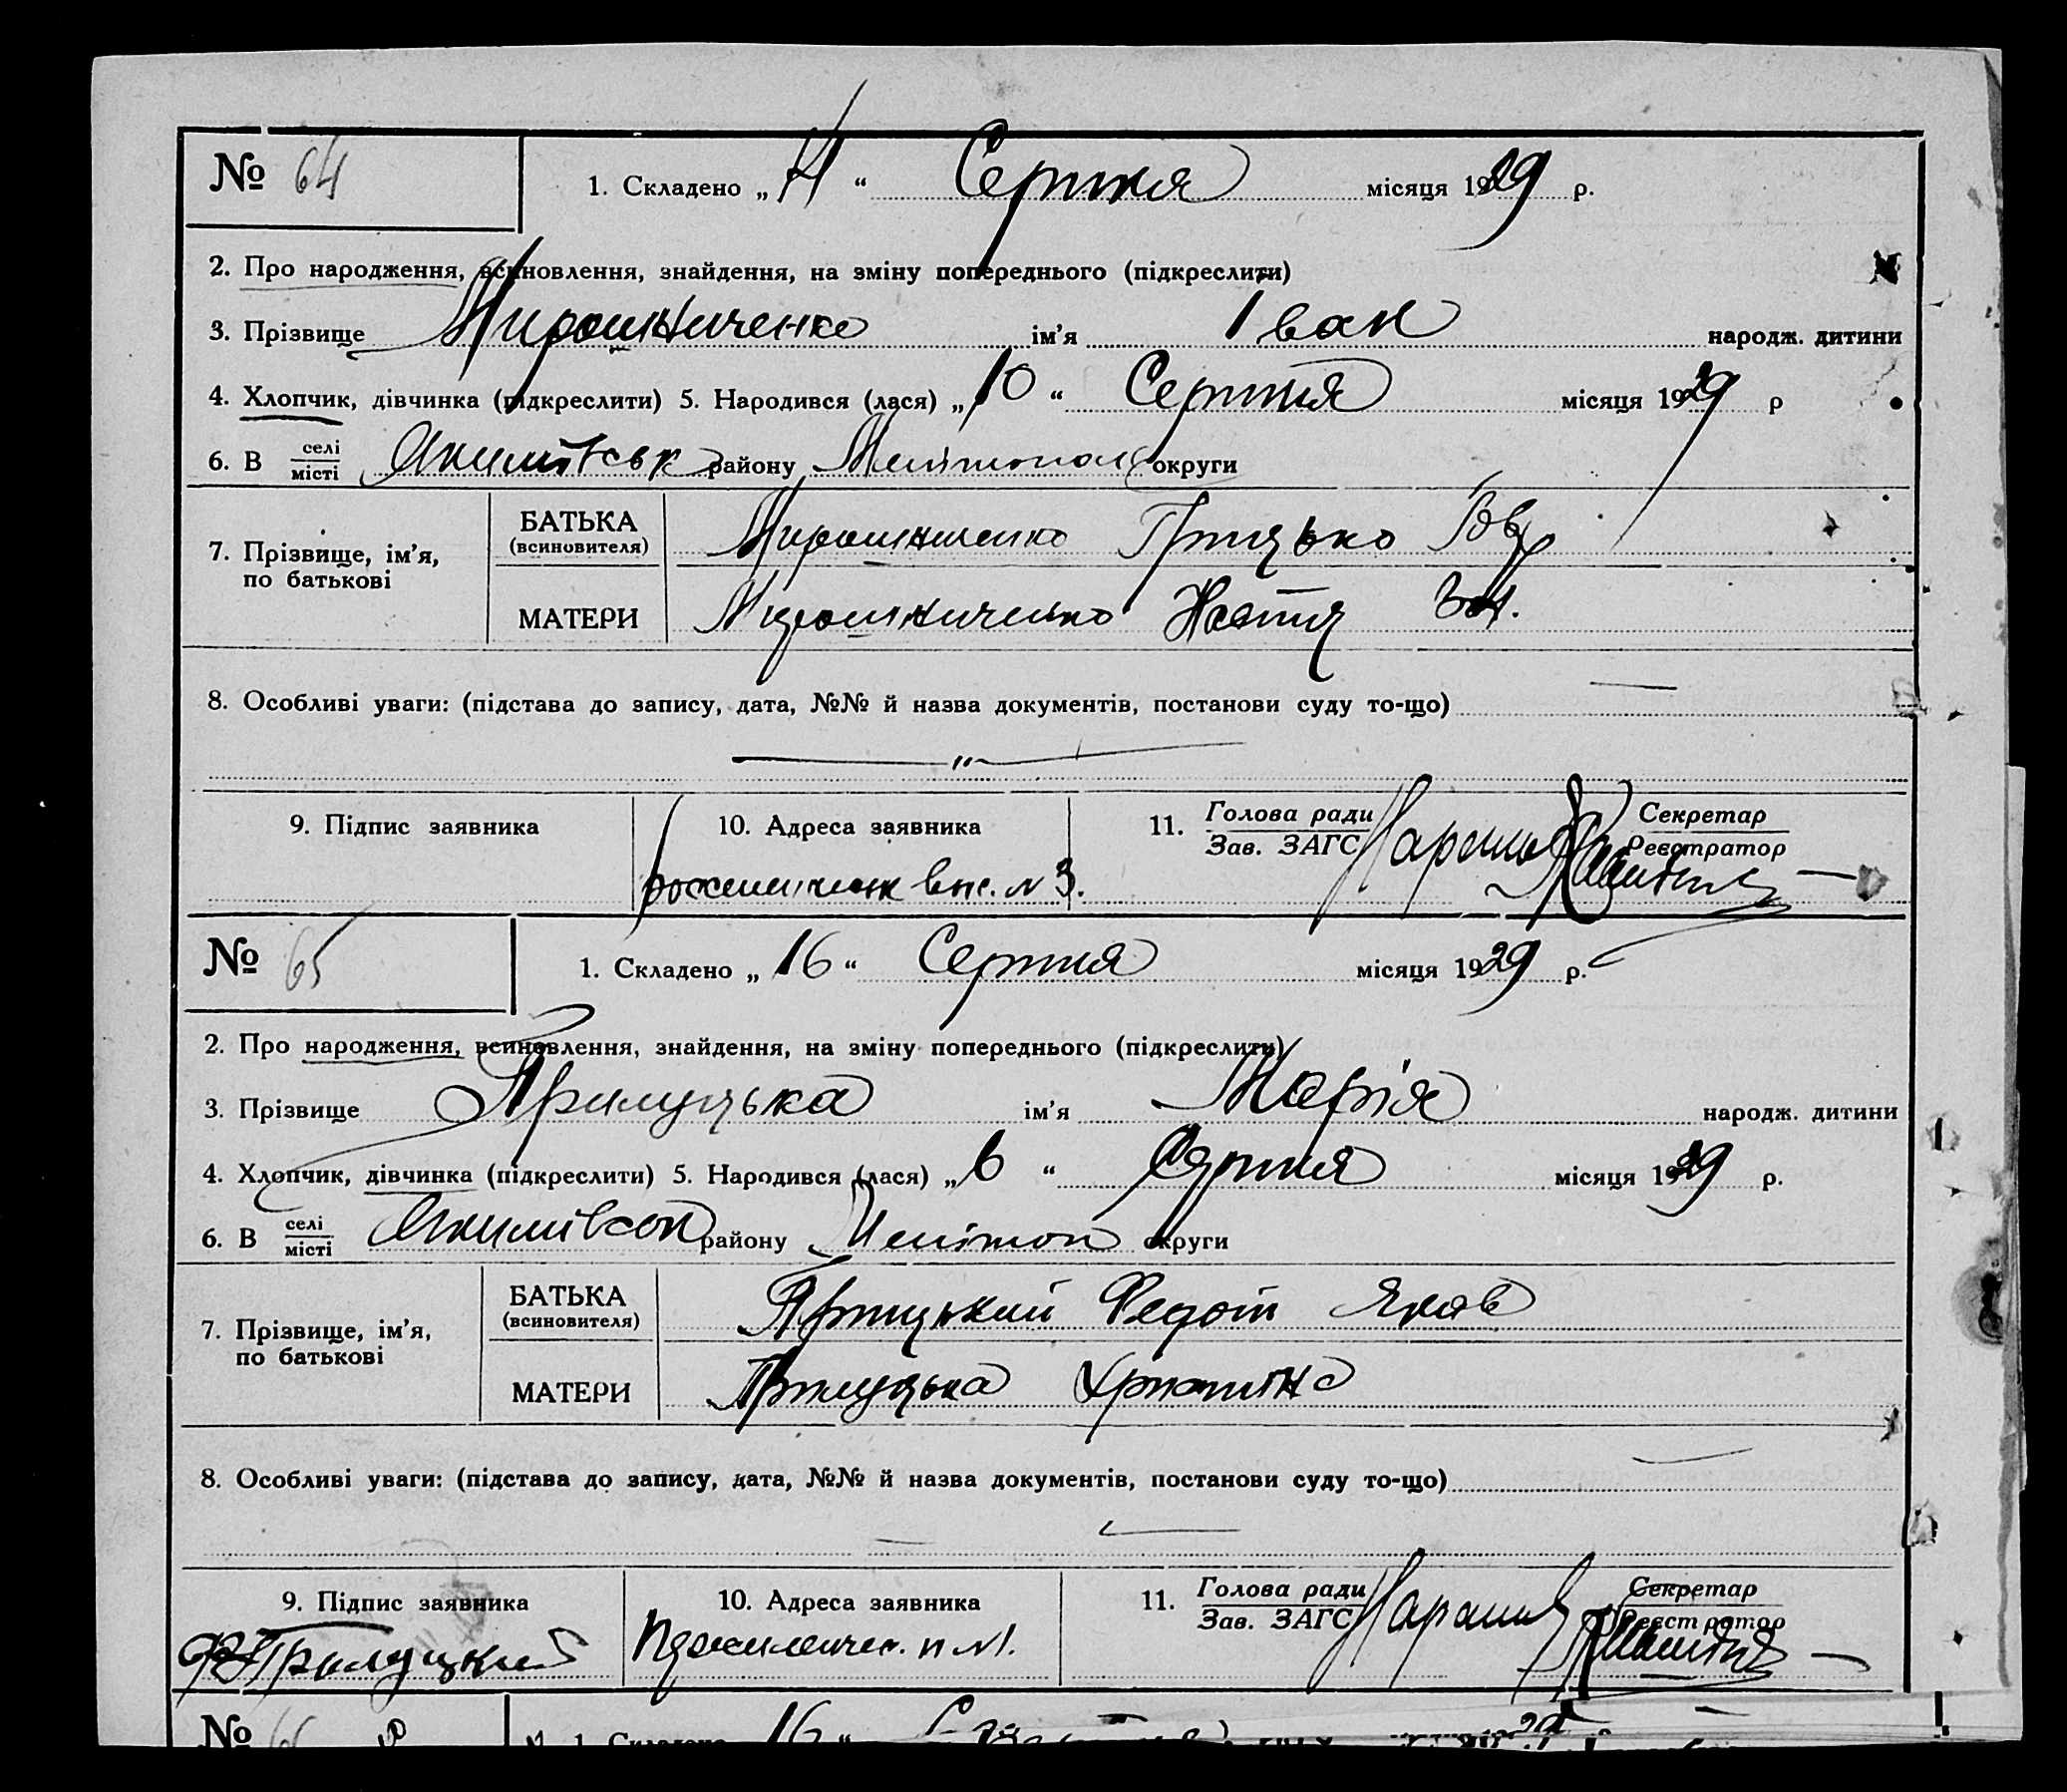 № 64 1. Складено „ “ Серпня місяця 1929 р.
2. Про народження, всиновлення, знайдення, на зміну попереднього (підкреслити)
3. Прізвище Мирошниченко ім’я Іван народж. дитини
4. Хлопчик, дівчинка (підкреслити) 5. Народився (лася) „ 10 “ Серпня місяця 1929 р
6. В селі/місті району Мелітопол округи
7. Прізвище, ім’я, по батькові
БАТЬКА (всиновителя) Мирошниченко Грицько
МАТЕРИ Мирошниченко Настя
8. Особливі уваги: (підстава до запису, дата, №№ й назва документів, постанови суду то-що)
9. Підпис заявника 10. Адреса заявника 11. Голова ради Секретар
Зав. ЗАГС Реєстратор
№ 3.
№ 65 1. Складено „ 16 “ Серпня місяця 1929 р.
2. Про народження, всиновлення, знайдення, на зміну попереднього (підкреслити)
3. Прізвище Прилуцька ім’я Марія народж. дитини
4. Хлопчик, дівчинка (підкреслити) 5. Народився (лася) „ 6 “ Серпня місяця 1929 р.
6. В селі/місті району Мелітоп округи
7. Прізвище, ім’я, по батькові
БАТЬКА (всиновителя) Федот Яков
МАТЕРИ Прилуцька Христина
8. Особливі уваги: (підстава до запису, дата, №№ й назва документів, постанови суду то-що)
9. Підпис заявника 10. Адреса заявника 11. Голова ради Секретар
Зав. ЗАГС Реєстратор
Прилуцкий № 1.
№ 66 1. Складено 16 “